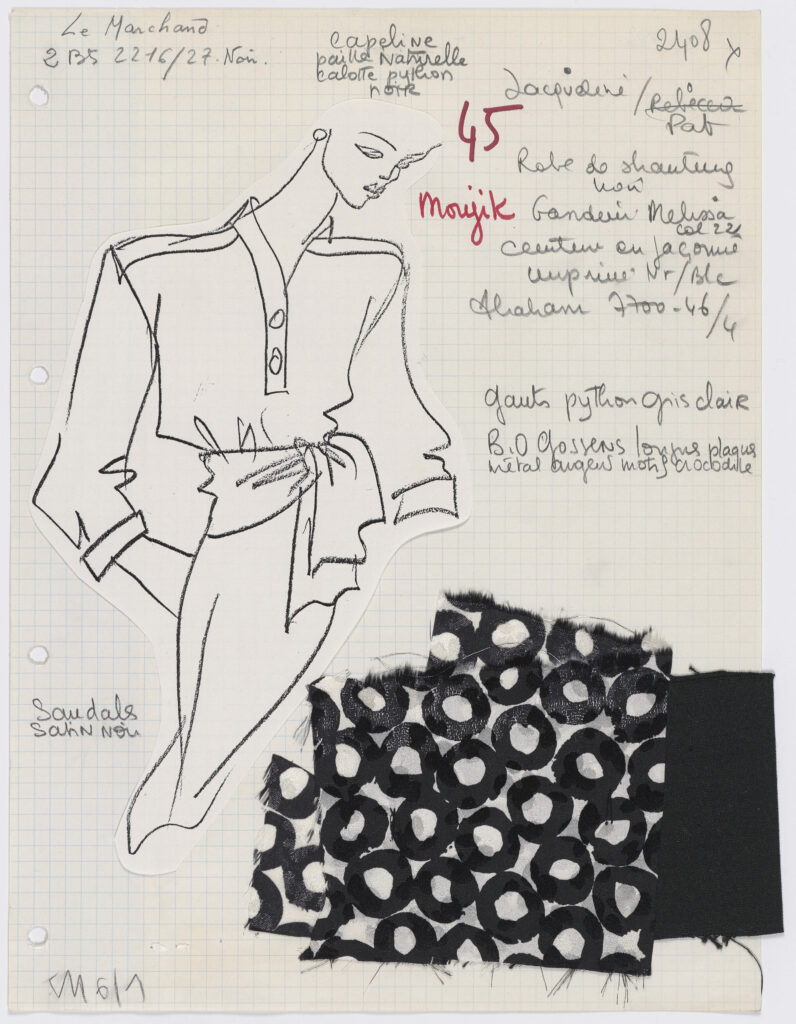 Le Marchand
2 B5 2216/27. Noir.
Capeline
paille Naturelle
calotte python
noire
2408 x
Jacqueline / Rebecca
Pat
45
Robe de shantung
noir
Moujik Gandini Melissa
col 221
ceinture en façonné
imprimé Nr/Blc
Abraham 7700-46/4
gants python gris clair
B.O Gossens longues plaques
métal argent motif crocodile
Sandals
satin noir
6/1